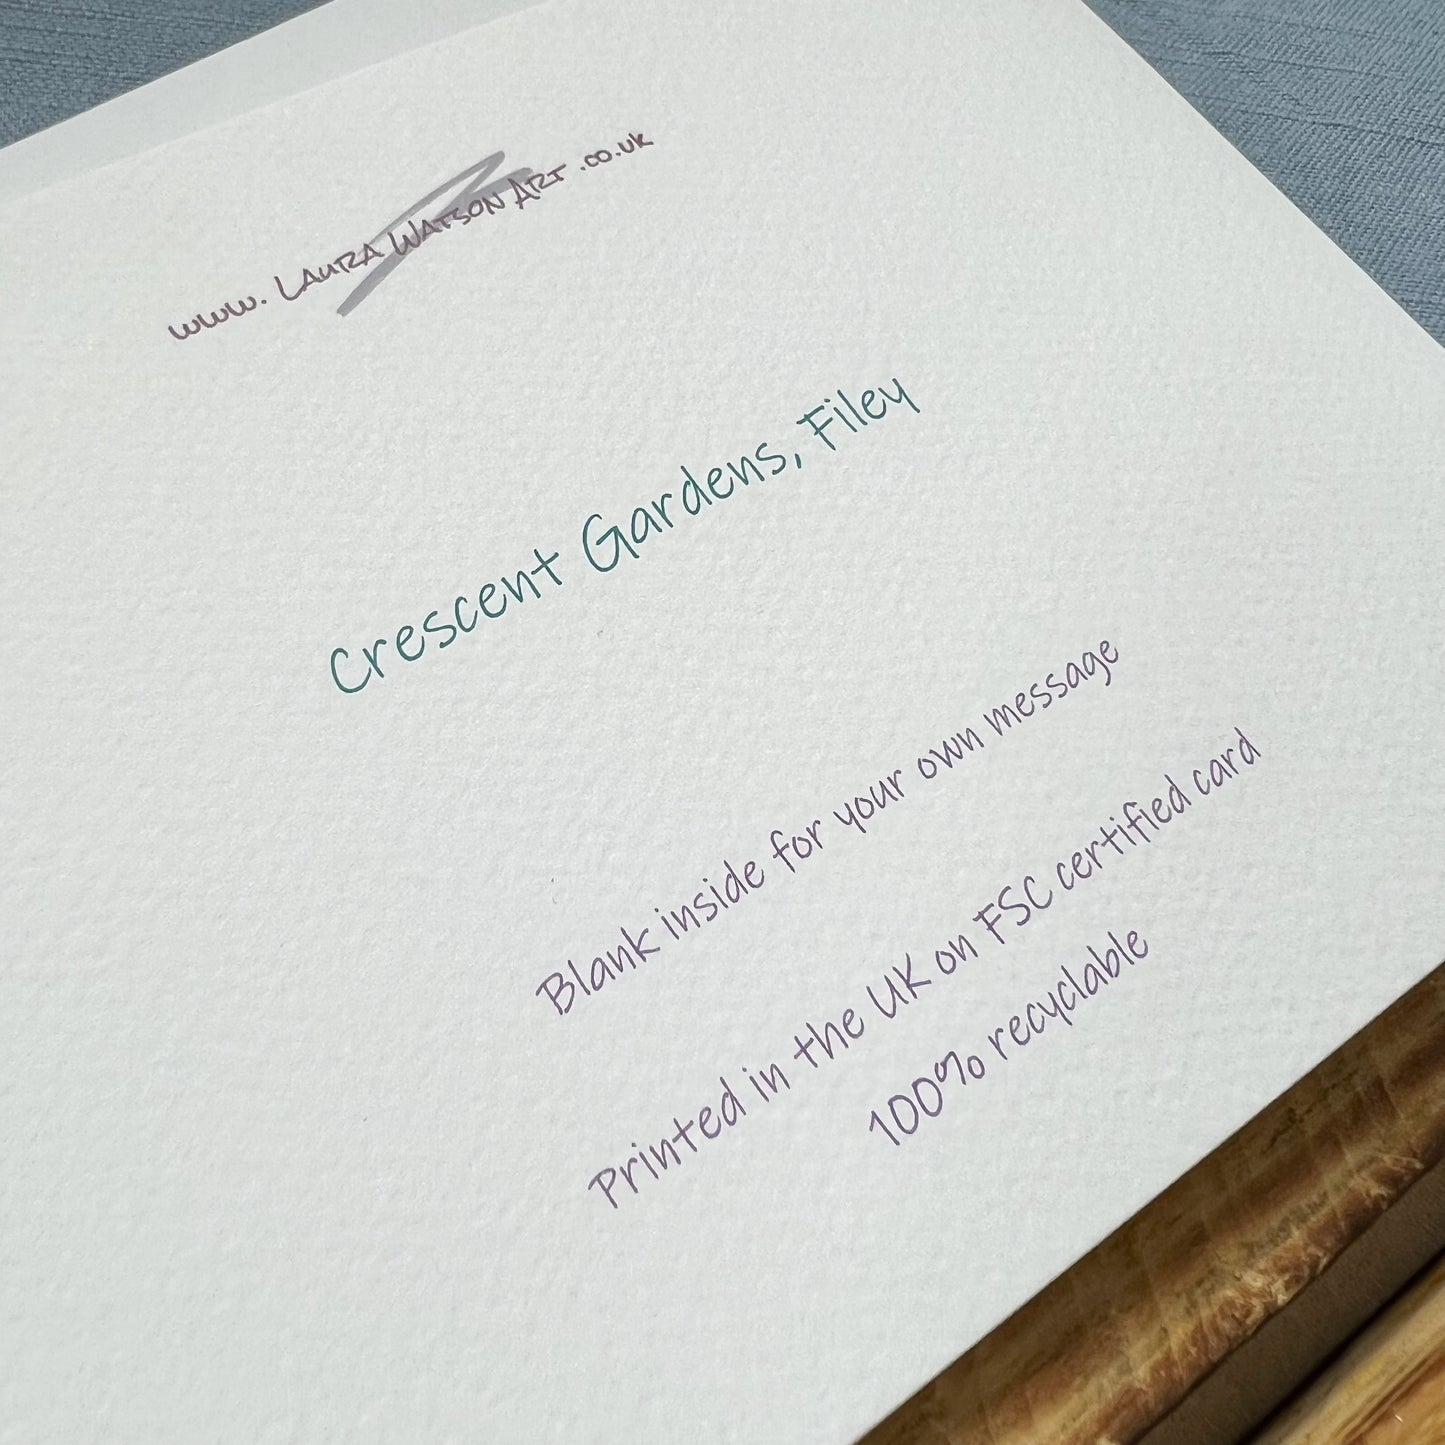 www. Laura Watson Art .co.uk
Crescent Gardens, Filey
Blank inside for your own message
Printed in the UK on FSC certified card
100% recyclable